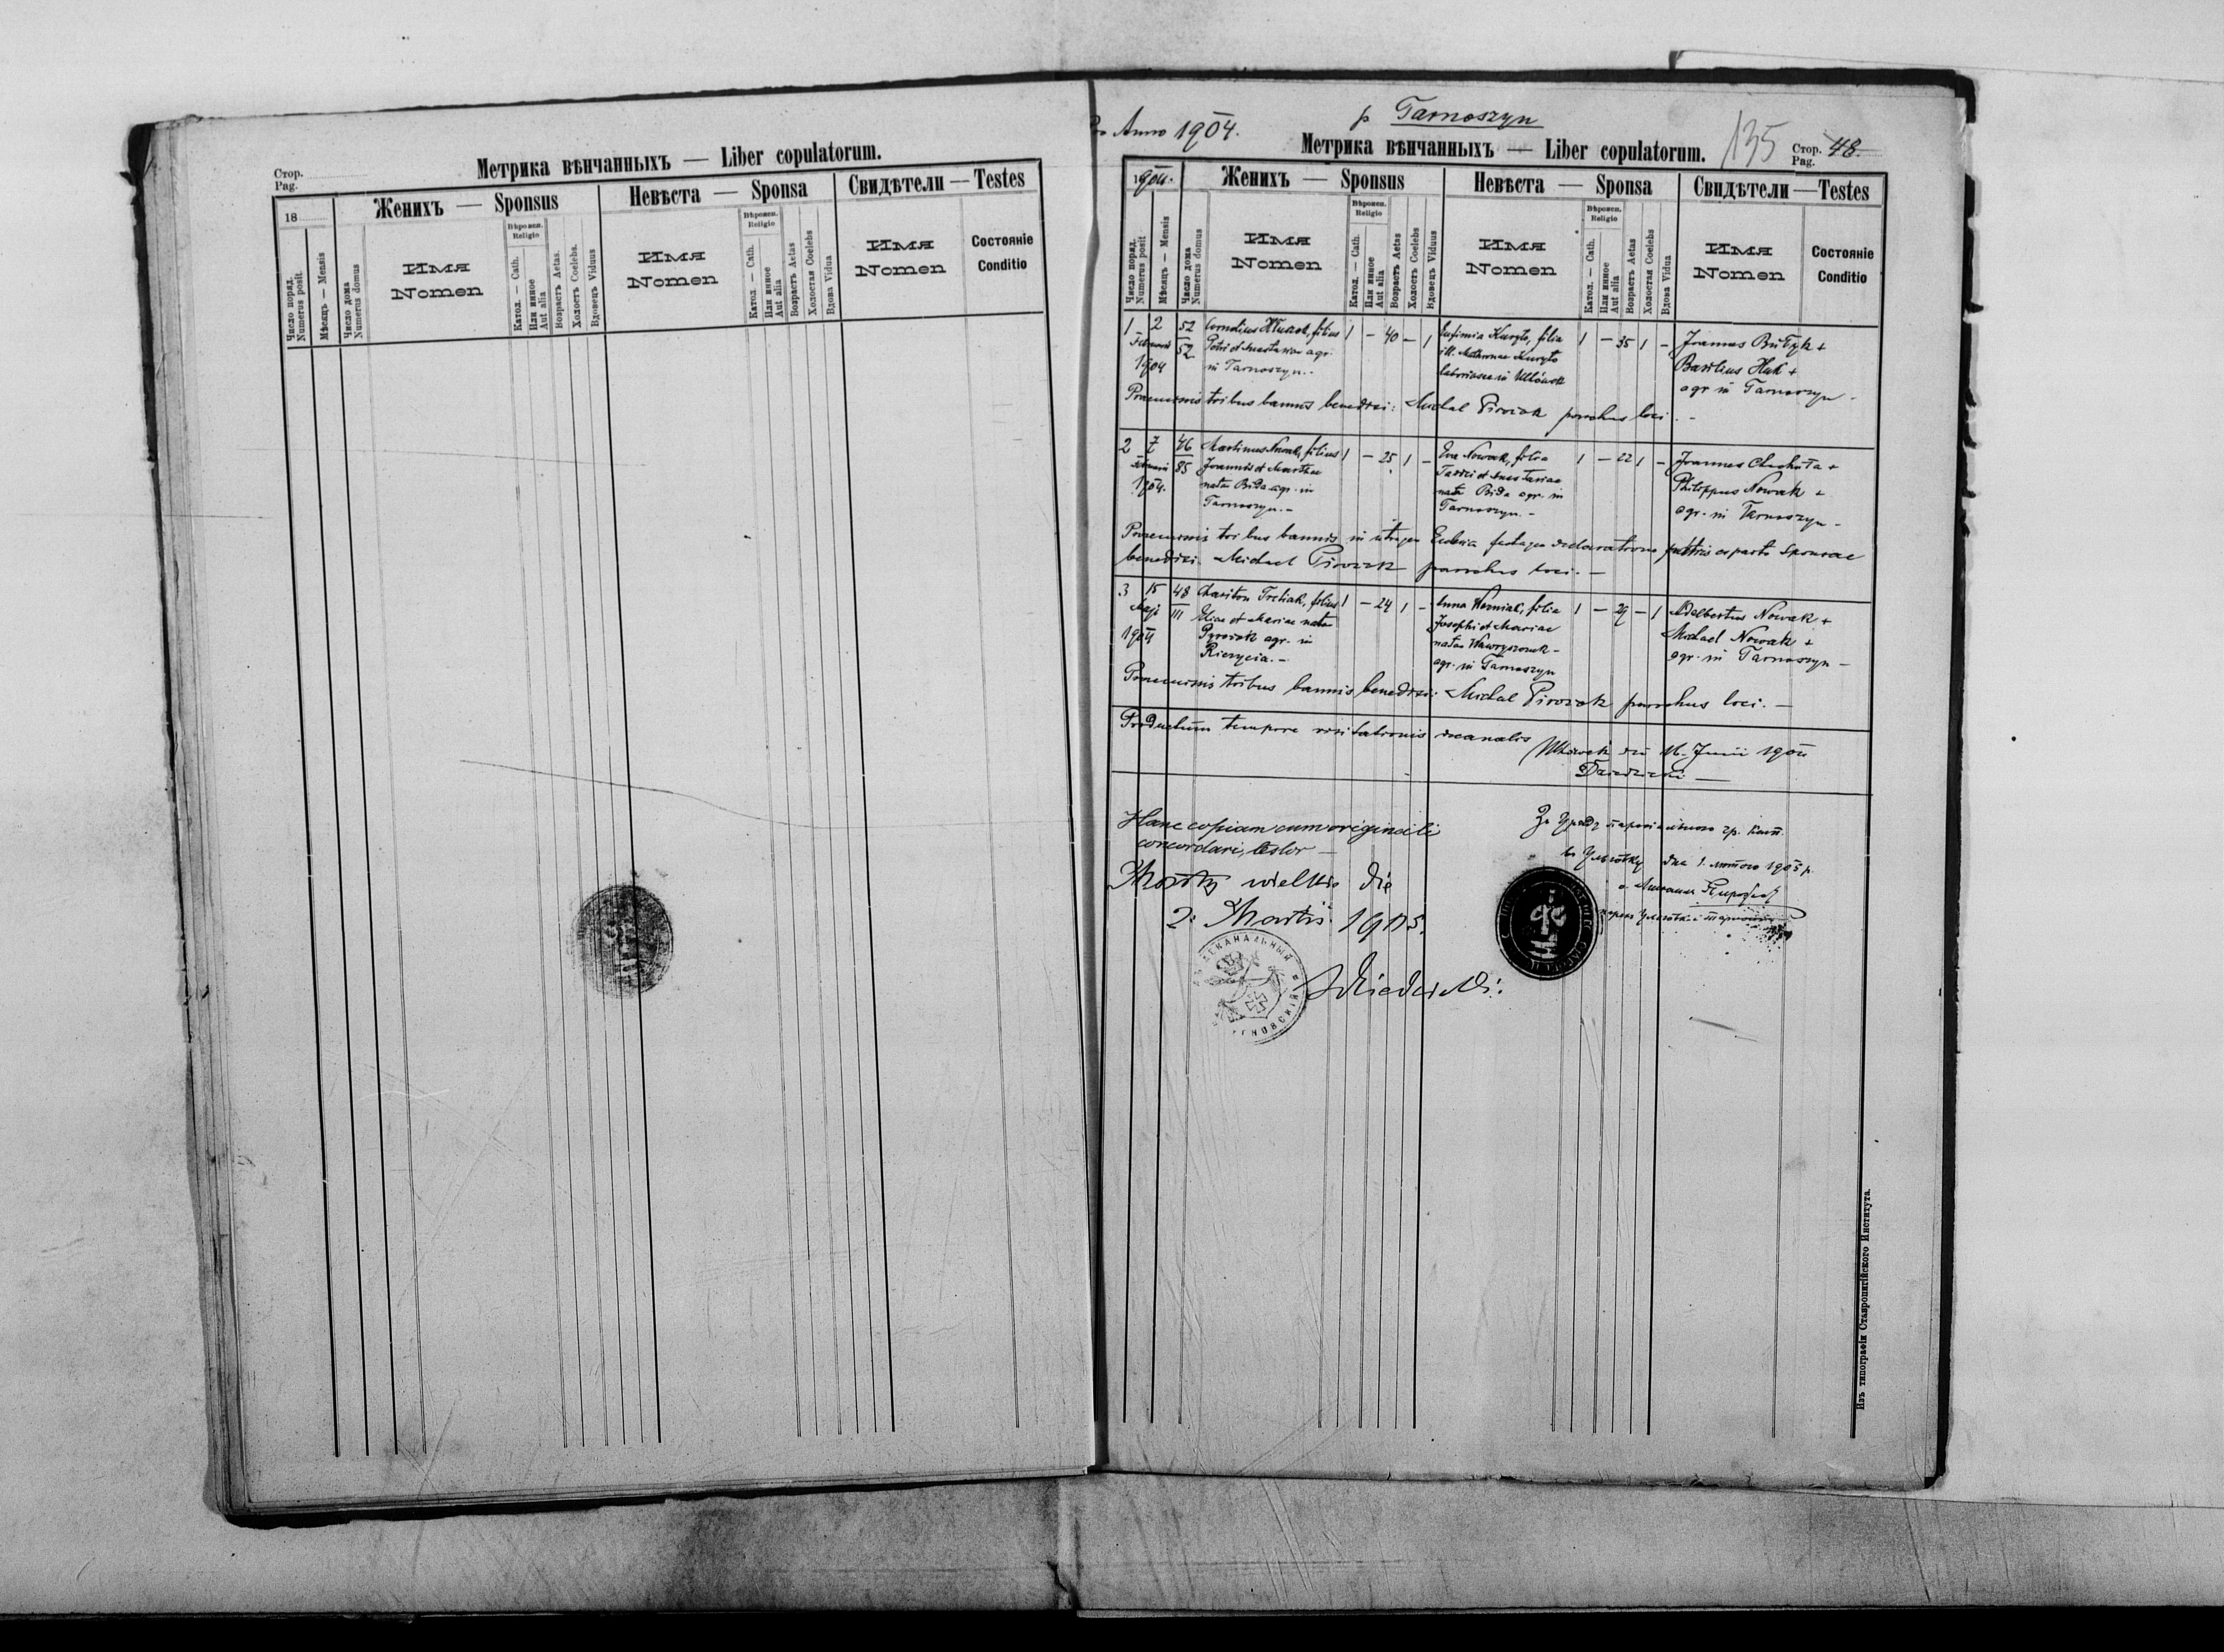 Стор.
Pag.
Метрика вѣнчанныхъ — Liber copulatorum.
18
Женихъ — Sponsus
Невѣста — Sponsa
Свидѣтели — Testes
Число поряд.
Numerus posit
Мѣсяцъ — Mensis
Число дома
Numerus domus
Имя
Nomen
Вѣроисп.
Religio
Катол. — Cath.
Или инное
Aut alia
Возрастъ Aetas.
Холостъ Coelebs.
Вдовецъ Viduus
Имя
Nomen
Вѣроисп.
Religio
Катол. — Cath.
Или инное
Aut alia
Возрастъ Aetas
Холостая Coelebs
Вдова Vidua
Имя
Nomen
Состояніе
Conditio
Anno 1904.
p Tarnoszyn
135
Стор.
Pag.
48.
Метрика вѣнчанныхъ — Liber copulatorum.
1904.
Женихъ — Sponsus
Невѣста — Sponsa
Свидѣтели — Testes
Число поряд.
Numerus posit
Мѣсяцъ — Mensis
Число дома
Numerus domus
Имя
Nomen
Вѣроисп.
Religio
Катол. — Cath.
Или инное
Aut alia
Возрастъ Aetas
Холостъ Coelebs
Вдовецъ Viduus
Имя
Nomen
Вѣроисп.
Religio
Катол. — Cath.
Или инное
Aut alia
Возрастъ Aetas
Холостая Coelebs
Вдова Vidua
Имя
Nomen
Состояніе
Conditio
1 2 52 Cornelius filius 1 — 40 — 1 Eufimia Kuryło, filia 1 — 35 1 — Joannes +
Februarii 52 Petri et Anastasiae agr. ill. Kuryło Basilius Huk +
1904 in Tarnoszyn. in Uhlówek agr in Tarnoszyn -
Praemissis tribus bannis benedixi: Michael Pirożak parochus loci. -
2 7 46 Martinus Nowak, filius 1 — 25 1 — Eva Nowak, filia 1 — 22 1 — Joannes +
Februarii 85 Joannis et Marthae et Anastasiae Philippus Nowak +
1904. natae Bida agr. in natae Bida agr. in agr. in Tarnoszyn -
Tarnoszyn. - Tarnoszyn. -
Praemissis tribus bannis in Ecclesia declaratione patris ex parte Sponsae
benedixi. Michael Pirożak parochus loci. —
3 15 48 Chariton Tretiak, filius 1 — 24 1 — Anna filia 1 — 29 — 1 Adelbertus Nowak +
Maji 111 Eliae et Mariae natae Josephi et Mariae Michael Nowak +
1904 agr. in natae agr. in Tarnoszyn -
Rzeczyca. - agr. in Tarnoszyn
Praemissis tribus bannis benedixi: Michael Pirożak parochus loci. —
Productum tempore visitationis decanalis
Uhlówek die 16. Junii 1904
Hanc copiam cum originali
concordare, testor —
Mosty wielkie die
2. Martii 1905.
дня 1. лютого 1905 р.
Изъ типографіи Ставропигійского Института.